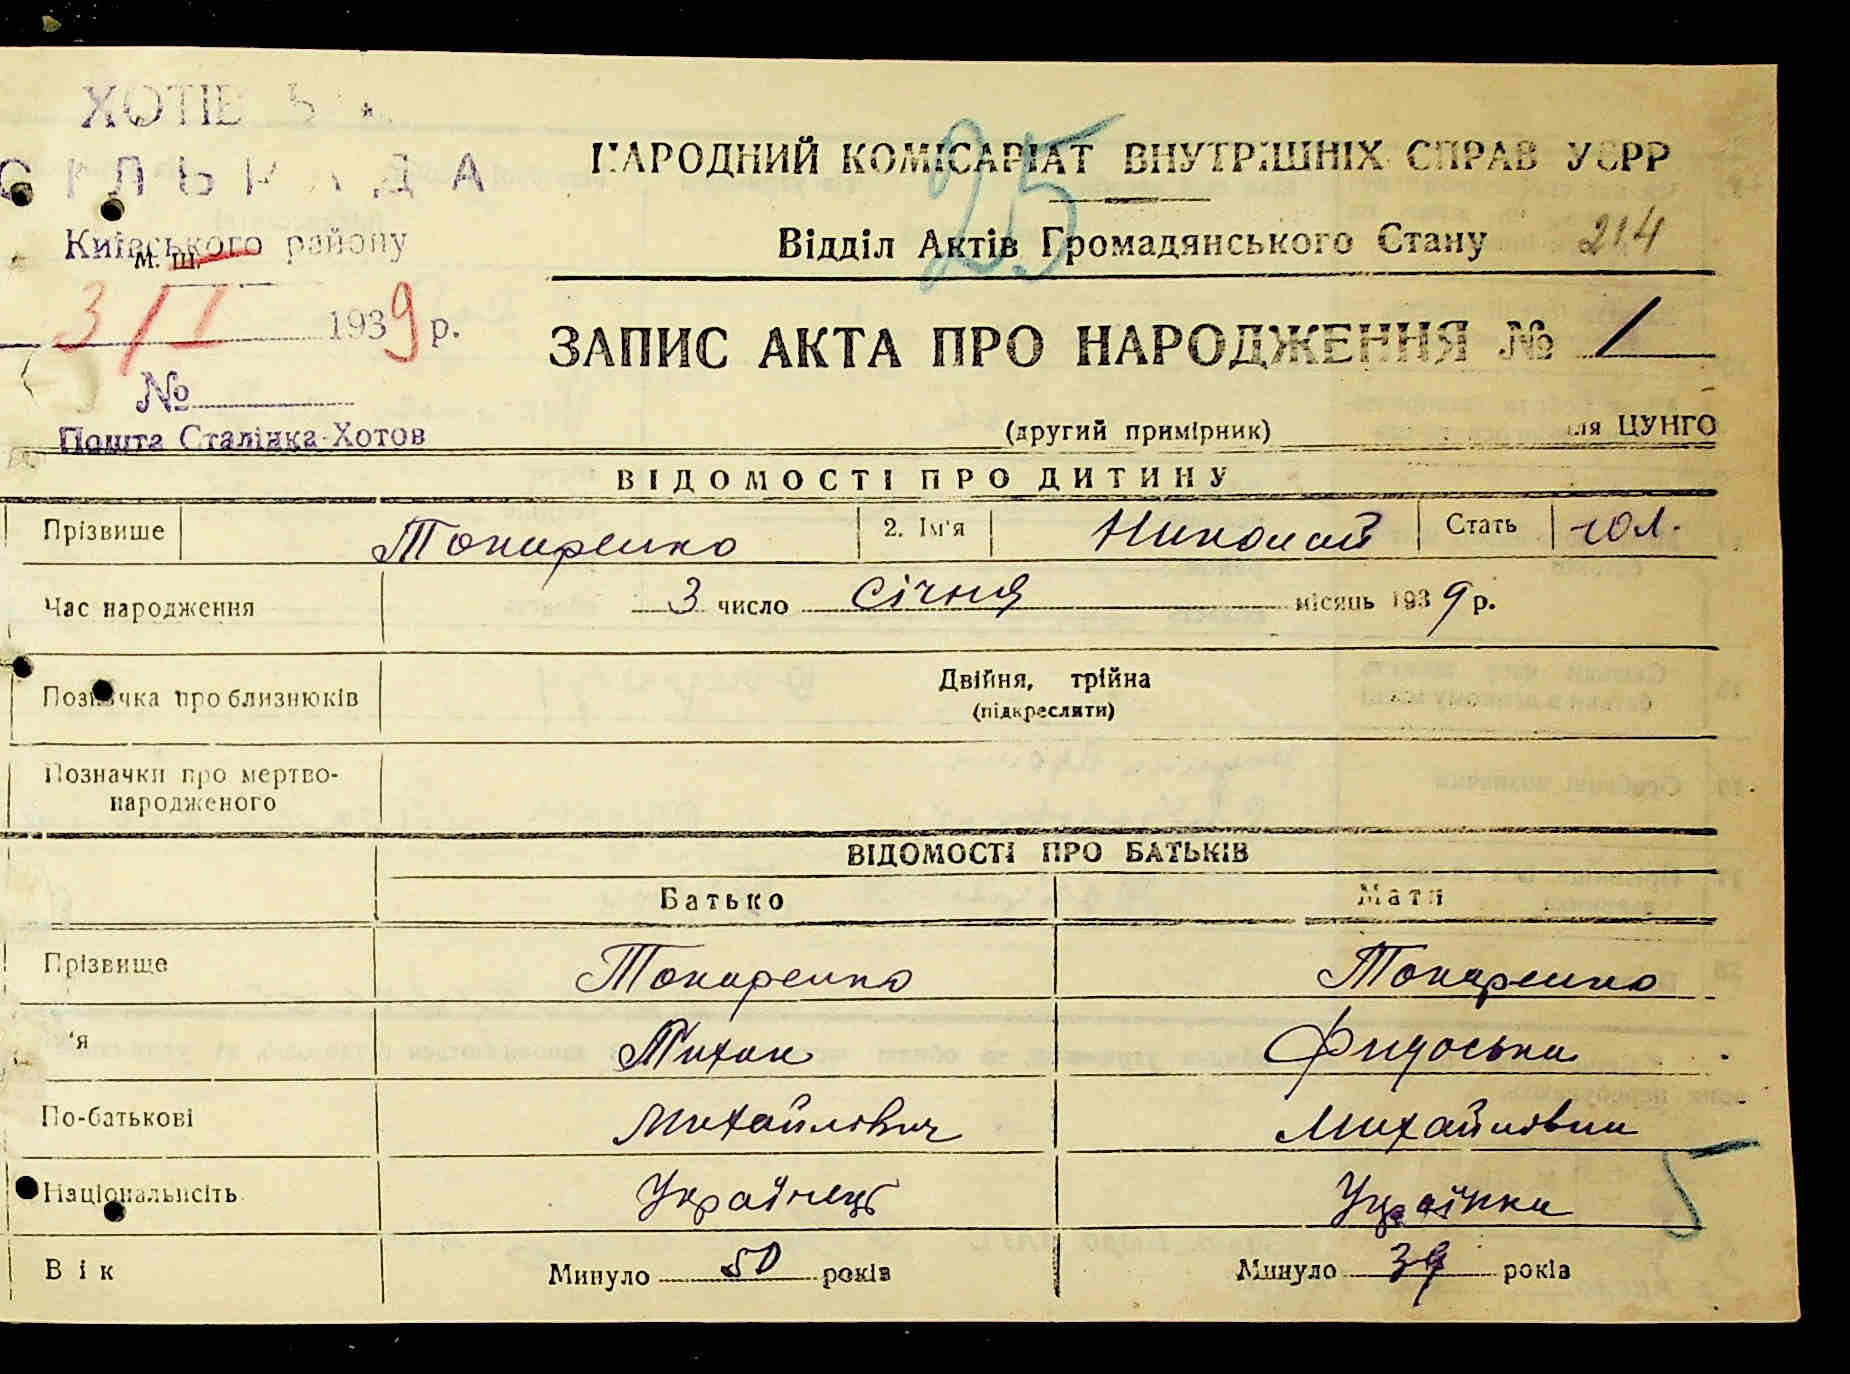 ХОТІВСЬКА
СІЛЬРАДА
Київського району
м. ш.
3/I 1939 р.
№
Пошта Сталінка-Хотов
25
НАРОДНИЙ КОМІСАРІАТ ВНУТРІШНІХ СПРАВ УСРР
Відділ Актів Громадянського Стану 214
ЗАПИС АКТА ПРО НАРОДЖЕННЯ № 1
(другий примірник) для ЦУНГО
ВІДОМОСТІ ПРО ДИТИНУ
Прізвище Токаренко 2. Ім'я Николай Стать чол.
Час народження 3 число січня місяць 1939 р.
Позначка про близнюків Двійня, трійна
(підкреслити)
Позначки про мертво-
народженого
ВІДОМОСТІ ПРО БАТЬКІВ
Батько Мати
Прізвище Токаренко Токаренко
'я Фидоська
По-батькові Михайлович Михайловна
Національність Українець Українка
Вік Минуло 50 років Минуло 39 років
5